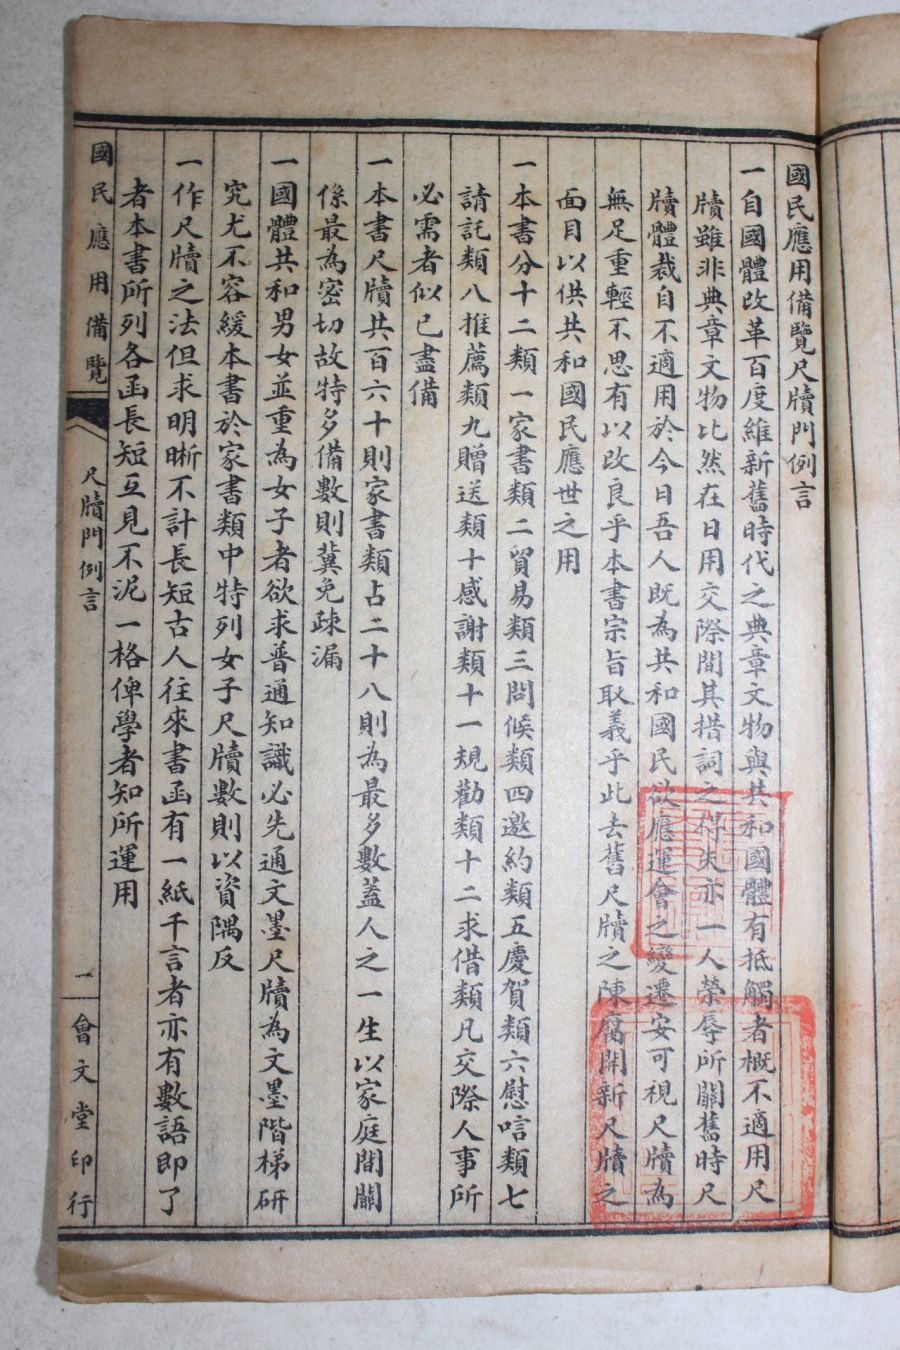 國民應用備覽尺牘門例言
一自國體改革百度維新舊時代之典章文物與共和國體有抵觸者概不適用尺
牘雖非典章文物比然在日用交際間其措詞之得失亦一人榮辱所關舊時尺
牘體裁自不適用於今日吾人既為共和國民欲應運會之變遷安可視尺牘為
無足重輕不思有以改良乎本書宗旨取義乎此去舊尺牘之陳腐開新尺牘之
面目以供共和國民應世之用
一本書分十二類一家書類二貿易類三問候類四邀約類五慶賀類六慰唁類七
請託類八推薦類九贈送類十感謝類十一規勸類十二求借類凡交際人事所
必需者似已盡備
一本書尺牘共百六十則家書類占二十八則為最多數蓋人之一生以家庭間關
係最為密切故特多備數則冀免疎漏
一國體共和男女並重為女子者欲求普通知識必先通文墨尺牘為文墨階梯研
究尤不容緩本書於家書類中特列女子尺牘數則以資隅反
一作尺牘之法但求明晰不計長短古人往來書函有一紙千言者亦有數語即了
者本書所列各函長短互見不泥一格俾學者知所運用
國民應用備覽
尺牘門例言
一
會文堂印行